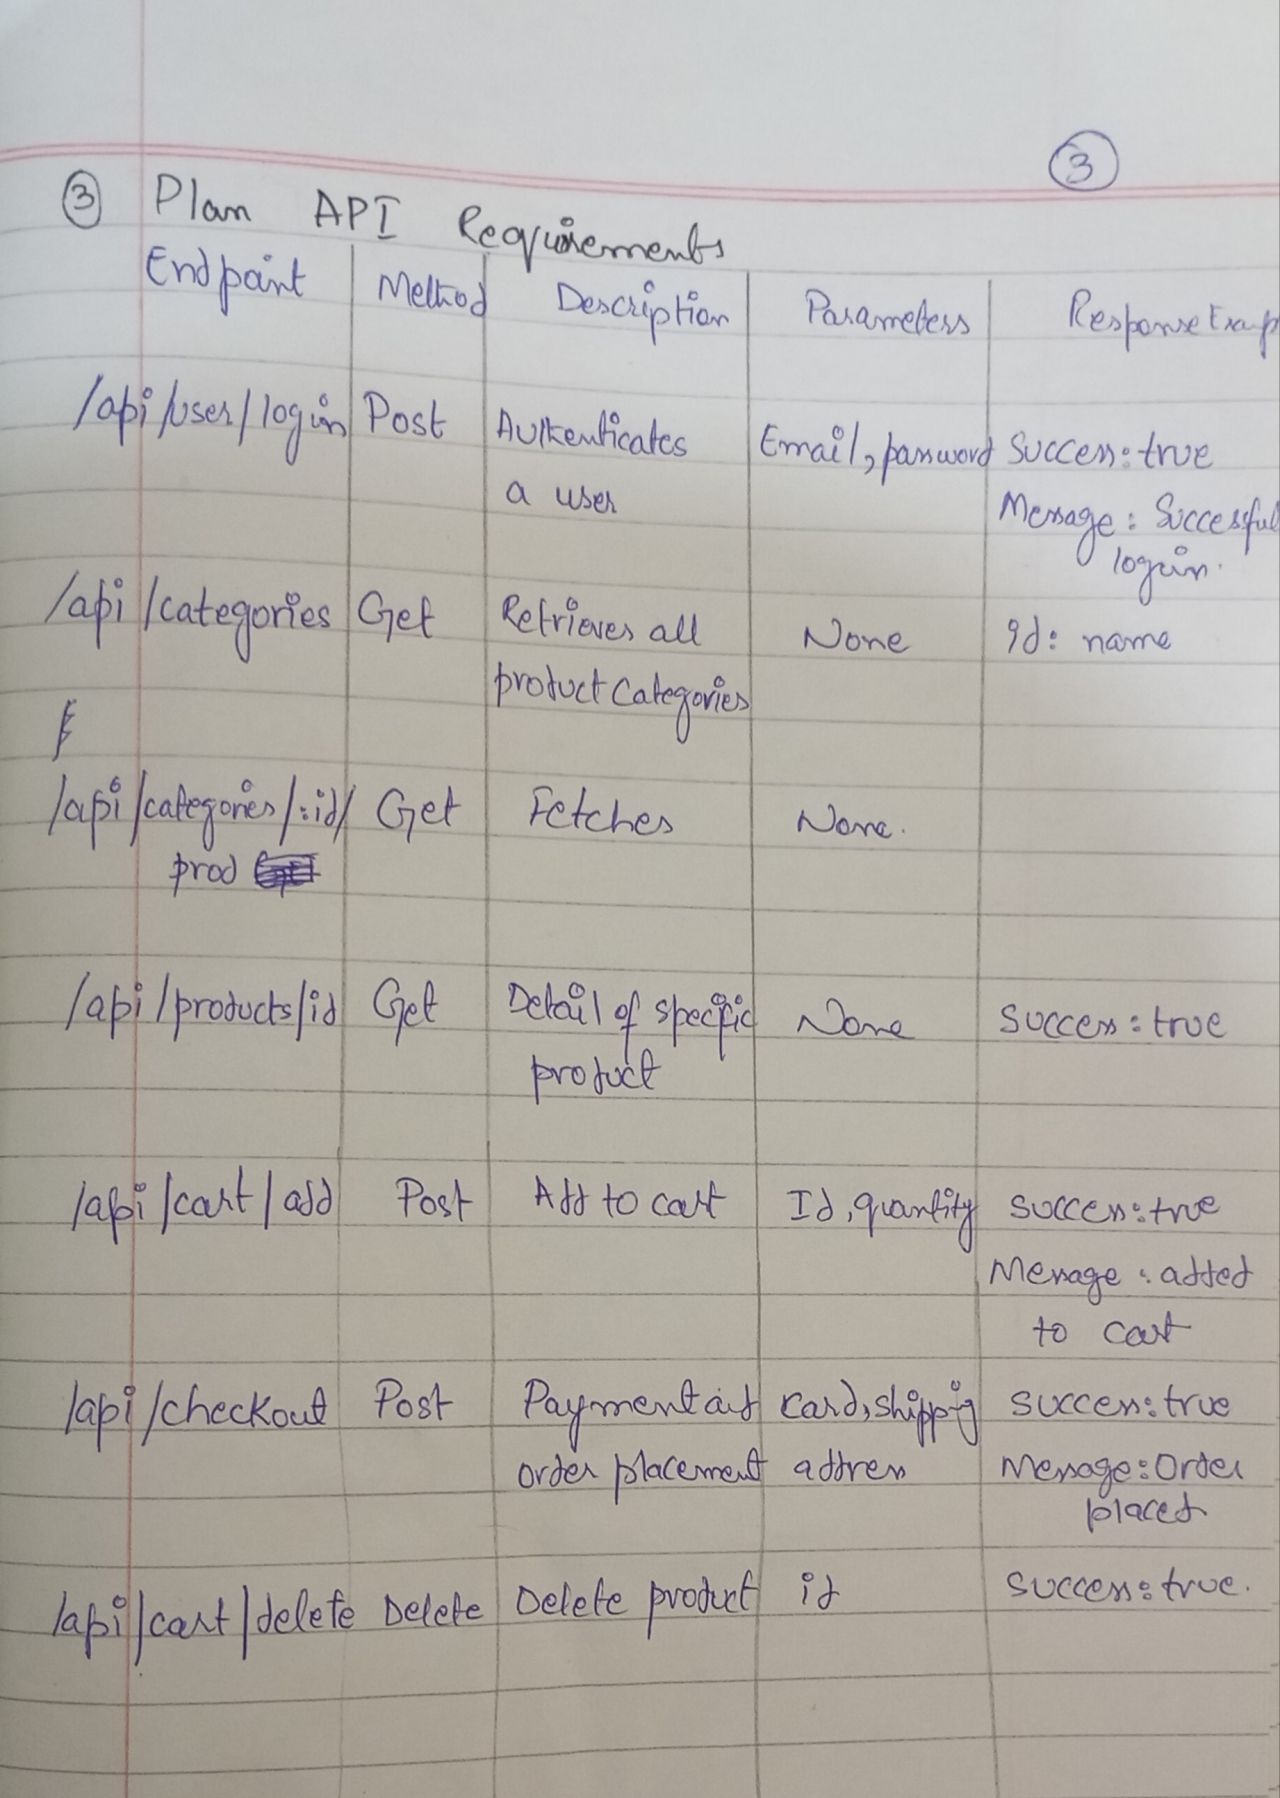 3
3 Plan API Requirements
Endpoint Method Description Parameters Response
/api/user/login Post Authenticates Email, password Success: true
a user Message: Successful
login.
/api/categories Get Retrieves all None id: name
product Categories
/api/categories/:id/ Get Fetches None.
prod
/api/products/id Get Detail of specific None Success: true
product
/api/cart/add Post Add to cart Id, quantity Success: true
Message: added
to cart
/api/checkout Post Payment and card, shipping success: true
order placement address Message: Order
placed
/api/cart/delete Delete Delete product id success: true.